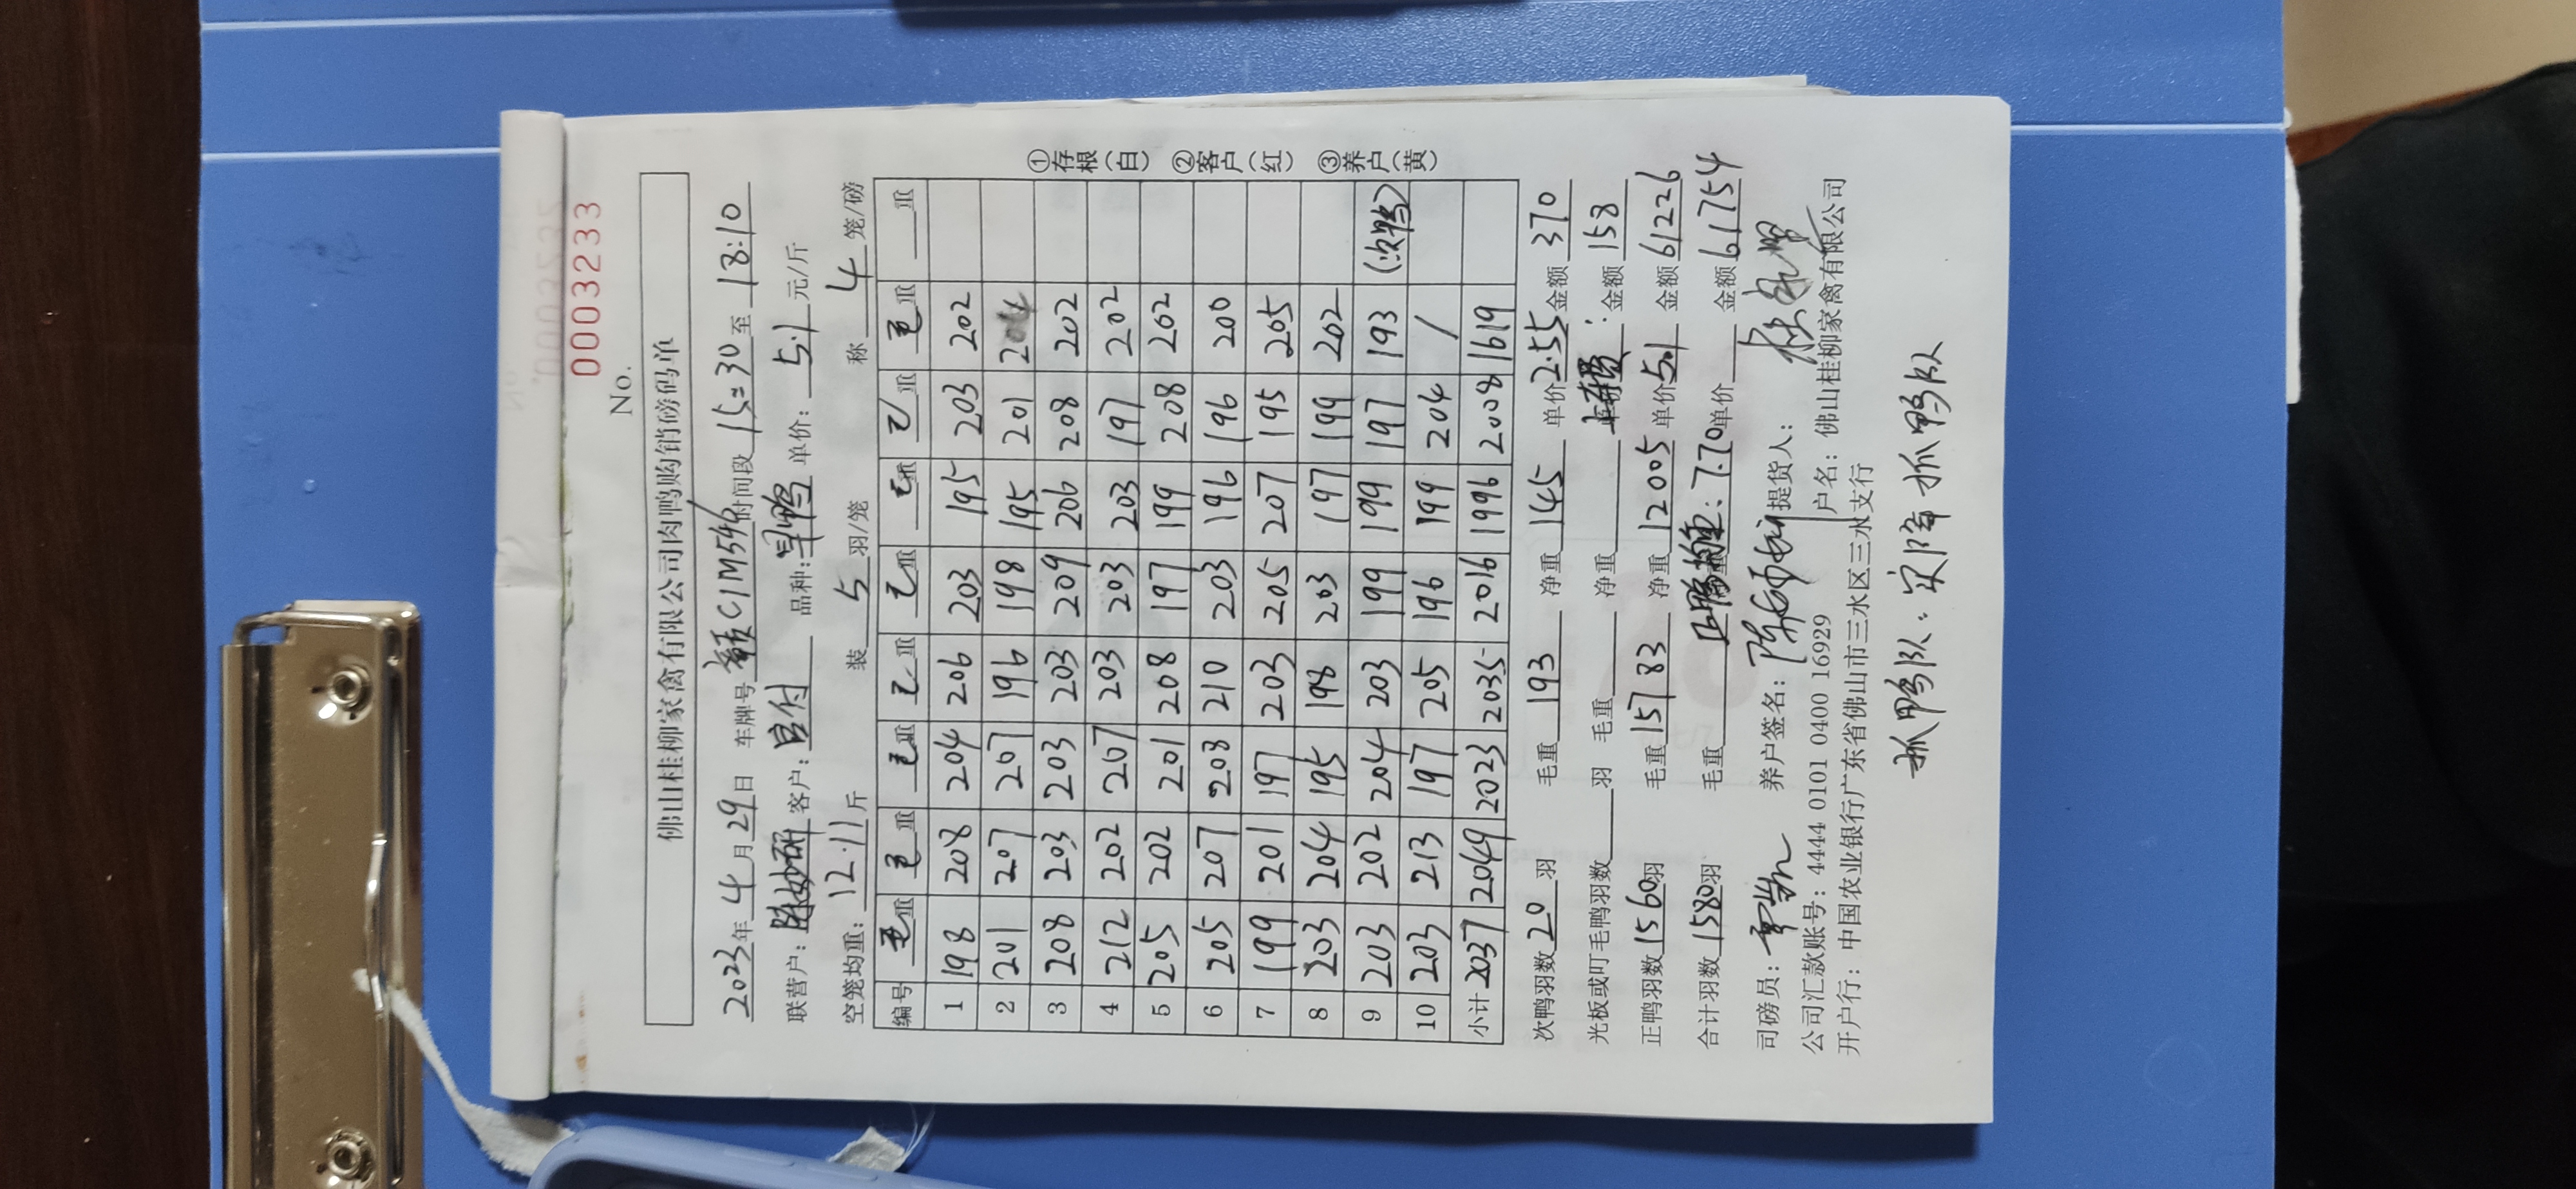 No. 0003233
佛山桂柳家禽有限公司肉鸭购销磅码单
2023年4月29日 车牌号 赣C1M546 时间段 15:30 至 18:10
联营户: 客户: 自付 品种: 旱鸭 单价: 5.1 元/斤
空笼均重: 12.11 斤 装 5 羽/笼 称 4 笼/磅
编号 毛重 毛重 毛重 毛重 毛重 毛重 毛重 毛重 重
1 198 208 204 206 203 195 203 202
2 201 207 207 196 198 195 201 204
3 208 203 203 203 209 206 208 202
4 212 202 207 203 203 203 197 202
5 205 202 201 208 197 199 208 202
6 205 207 208 210 203 196 196 200
7 199 201 197 203 205 207 195 205
8 203 204 195 198 203 197 199 202
9 203 202 204 203 199 199 197 193 (次鸭)
10 203 213 197 205 196 199 204 /
小计 2037 2049 2023 2035 2016 1996 2008 1619
①存根(白) ②客户(红) ③养户(黄)
次鸭羽数 20 羽 毛重 193 净重 145 单价 2.55 金额 370
光板或叮毛鸭羽数 羽 毛重 净重 金额 158
正鸭羽数 1560 羽 毛重 15783 净重 12005 单价 5.1 金额 61226
合计羽数 1580 羽 毛重 正鸭均重: 7.70 单价 金额 61754
司磅员: 养户签名: 提货人:
公司汇款账号: 4444 0101 0400 16929 户名: 佛山桂柳家禽有限公司
开户行: 中国农业银行广东省佛山市三水区三水支行
抓鸭队: 抓鸭队